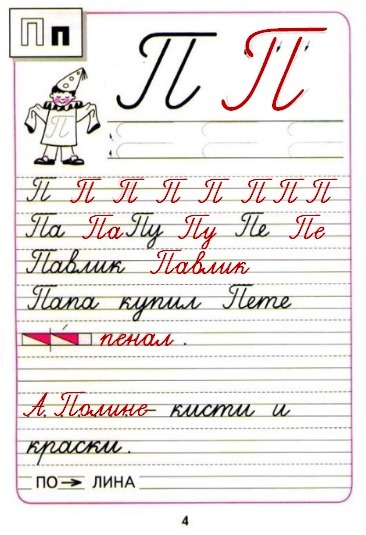 П п
П П
П
П П П П П П П П
Па Па Пу Пу Пе Пе
Павлик Павлик
Папа купил Пете
пенал .
А Полине кисти и
краски .
ПО → ЛИНА
4